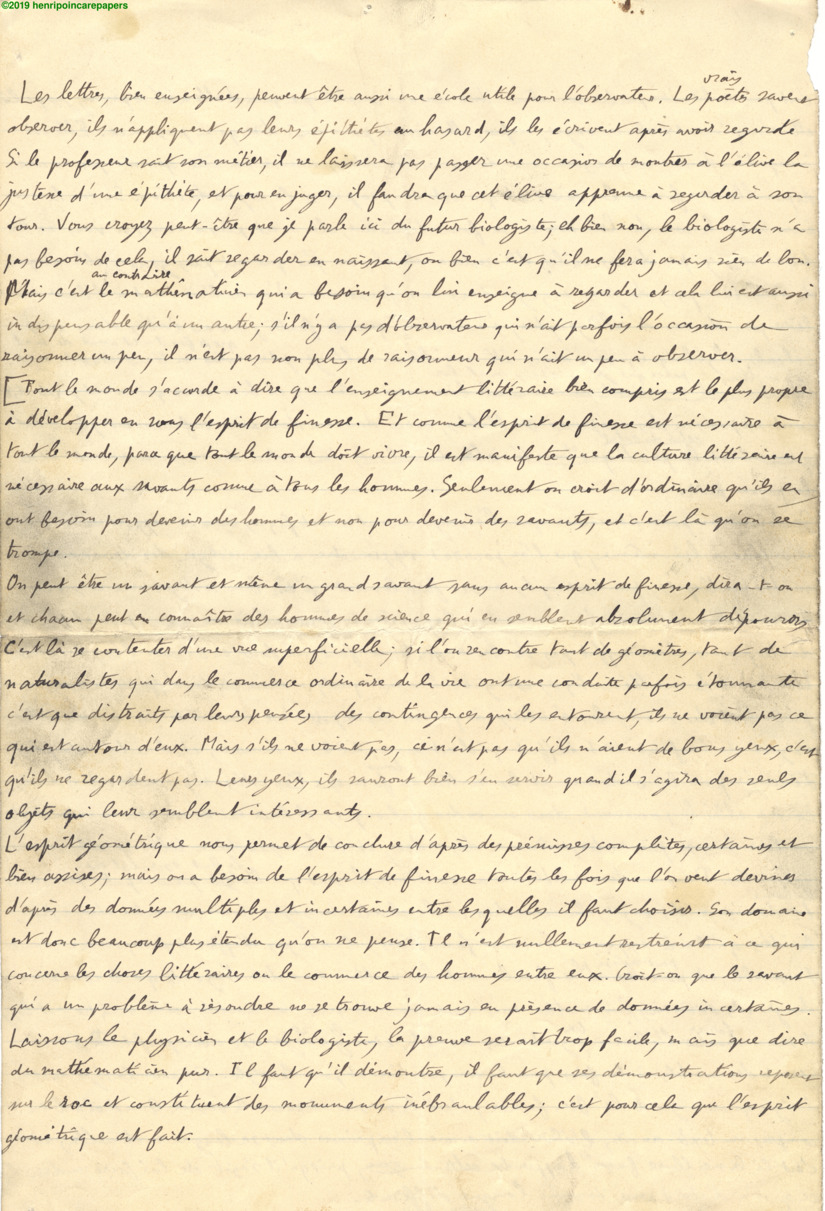 ©2019 henripoincarepapers
Les lettres, bien enseignées, peuvent être aussi une école utile pour l'observateur. Les vrais poëtes savent
observer, ils n'appliquent pas leurs épithètes au hasard, ils les écrivent après avoir regardé
Si le professeur sait son métier, il ne laissera pas passer une occasion de montrer à l'élève la
justesse d'une épithète, et pour en juger, il faudra que cet élève apprenne à regarder à son
tour. Vous croyez peut-être que je parle ici du futur biologiste; eh bien non, le biologiste n'a
pas besoin de cela, il sait regarder en naissant, ou bien c'est qu'il ne fera jamais rien de bon.
Mais c'est au contraire le mathématicien qui a besoin qu'on lui enseigne à regarder et cela lui est aussi
indispensable qu'à un autre; s'il n'y a pas d'observateur qui n'ait parfois l'occasion de
raisonner un peu, il n'est pas non plus de raisonneur qui n'ait un peu à observer.
[Tout le monde s'accorde à dire que l'enseignement littéraire bien compris est le plus propre
à développer en nous l'esprit de finesse. Et comme l'esprit de finesse est nécessaire à
tout le monde, parce que tout le monde doit vivre, il est manifeste que la culture littéraire est
nécessaire aux savants comme à tous les hommes. Seulement on croit d'ordinaire qu'ils en
ont besoin pour devenir des hommes et non pour devenir des savants, et c'est là qu'on se
trompe.
On peut être un savant et même un grand savant sans aucun esprit de finesse, dira-t-on
et chacun peut en connaître des hommes de science qui en semblent absolument dépourvus
C'est là se contenter d'une vue superficielle; si l'on rencontre tant de géomètres, tant de
naturalistes qui dans le commerce ordinaire de la vie ont une conduite parfois étonnante
c'est que distraits par leurs pensées des contingences qui les entourent, ils ne voient pas ce
qui est autour d'eux. Mais s'ils ne voient pas, ce n'est pas qu'ils n'aient de bons yeux, c'est
qu'ils ne regardent pas. Leurs yeux, ils sauront bien s'en servir quand il s'agira des seuls
objets qui leur semblent intéressants.
L'esprit géométrique nous permet de conclure d'après des prémisses complètes, certaines et
bien assises; mais on a besoin de l'esprit de finesse toutes les fois que l'on veut deviner
d'après des données multiples et incertaines entre lesquelles il faut choisir. Son domaine
est donc beaucoup plus étendu qu'on ne pense. Il n'est nullement restreint à ce qui
concerne les choses littéraires ou le commerce des hommes entre eux. Croit-on que le savant
qui a un problème à résoudre ne se trouve jamais en présence de données incertaines.
Laissons le physicien et le biologiste, la preuve serait trop facile, mais que dire
du mathématicien pur. Il faut qu'il démontre, il faut que ses démonstrations reposent
sur le roc et constituent des monuments inébranlables; c'est pour cela que l'esprit
géométrique est fait.